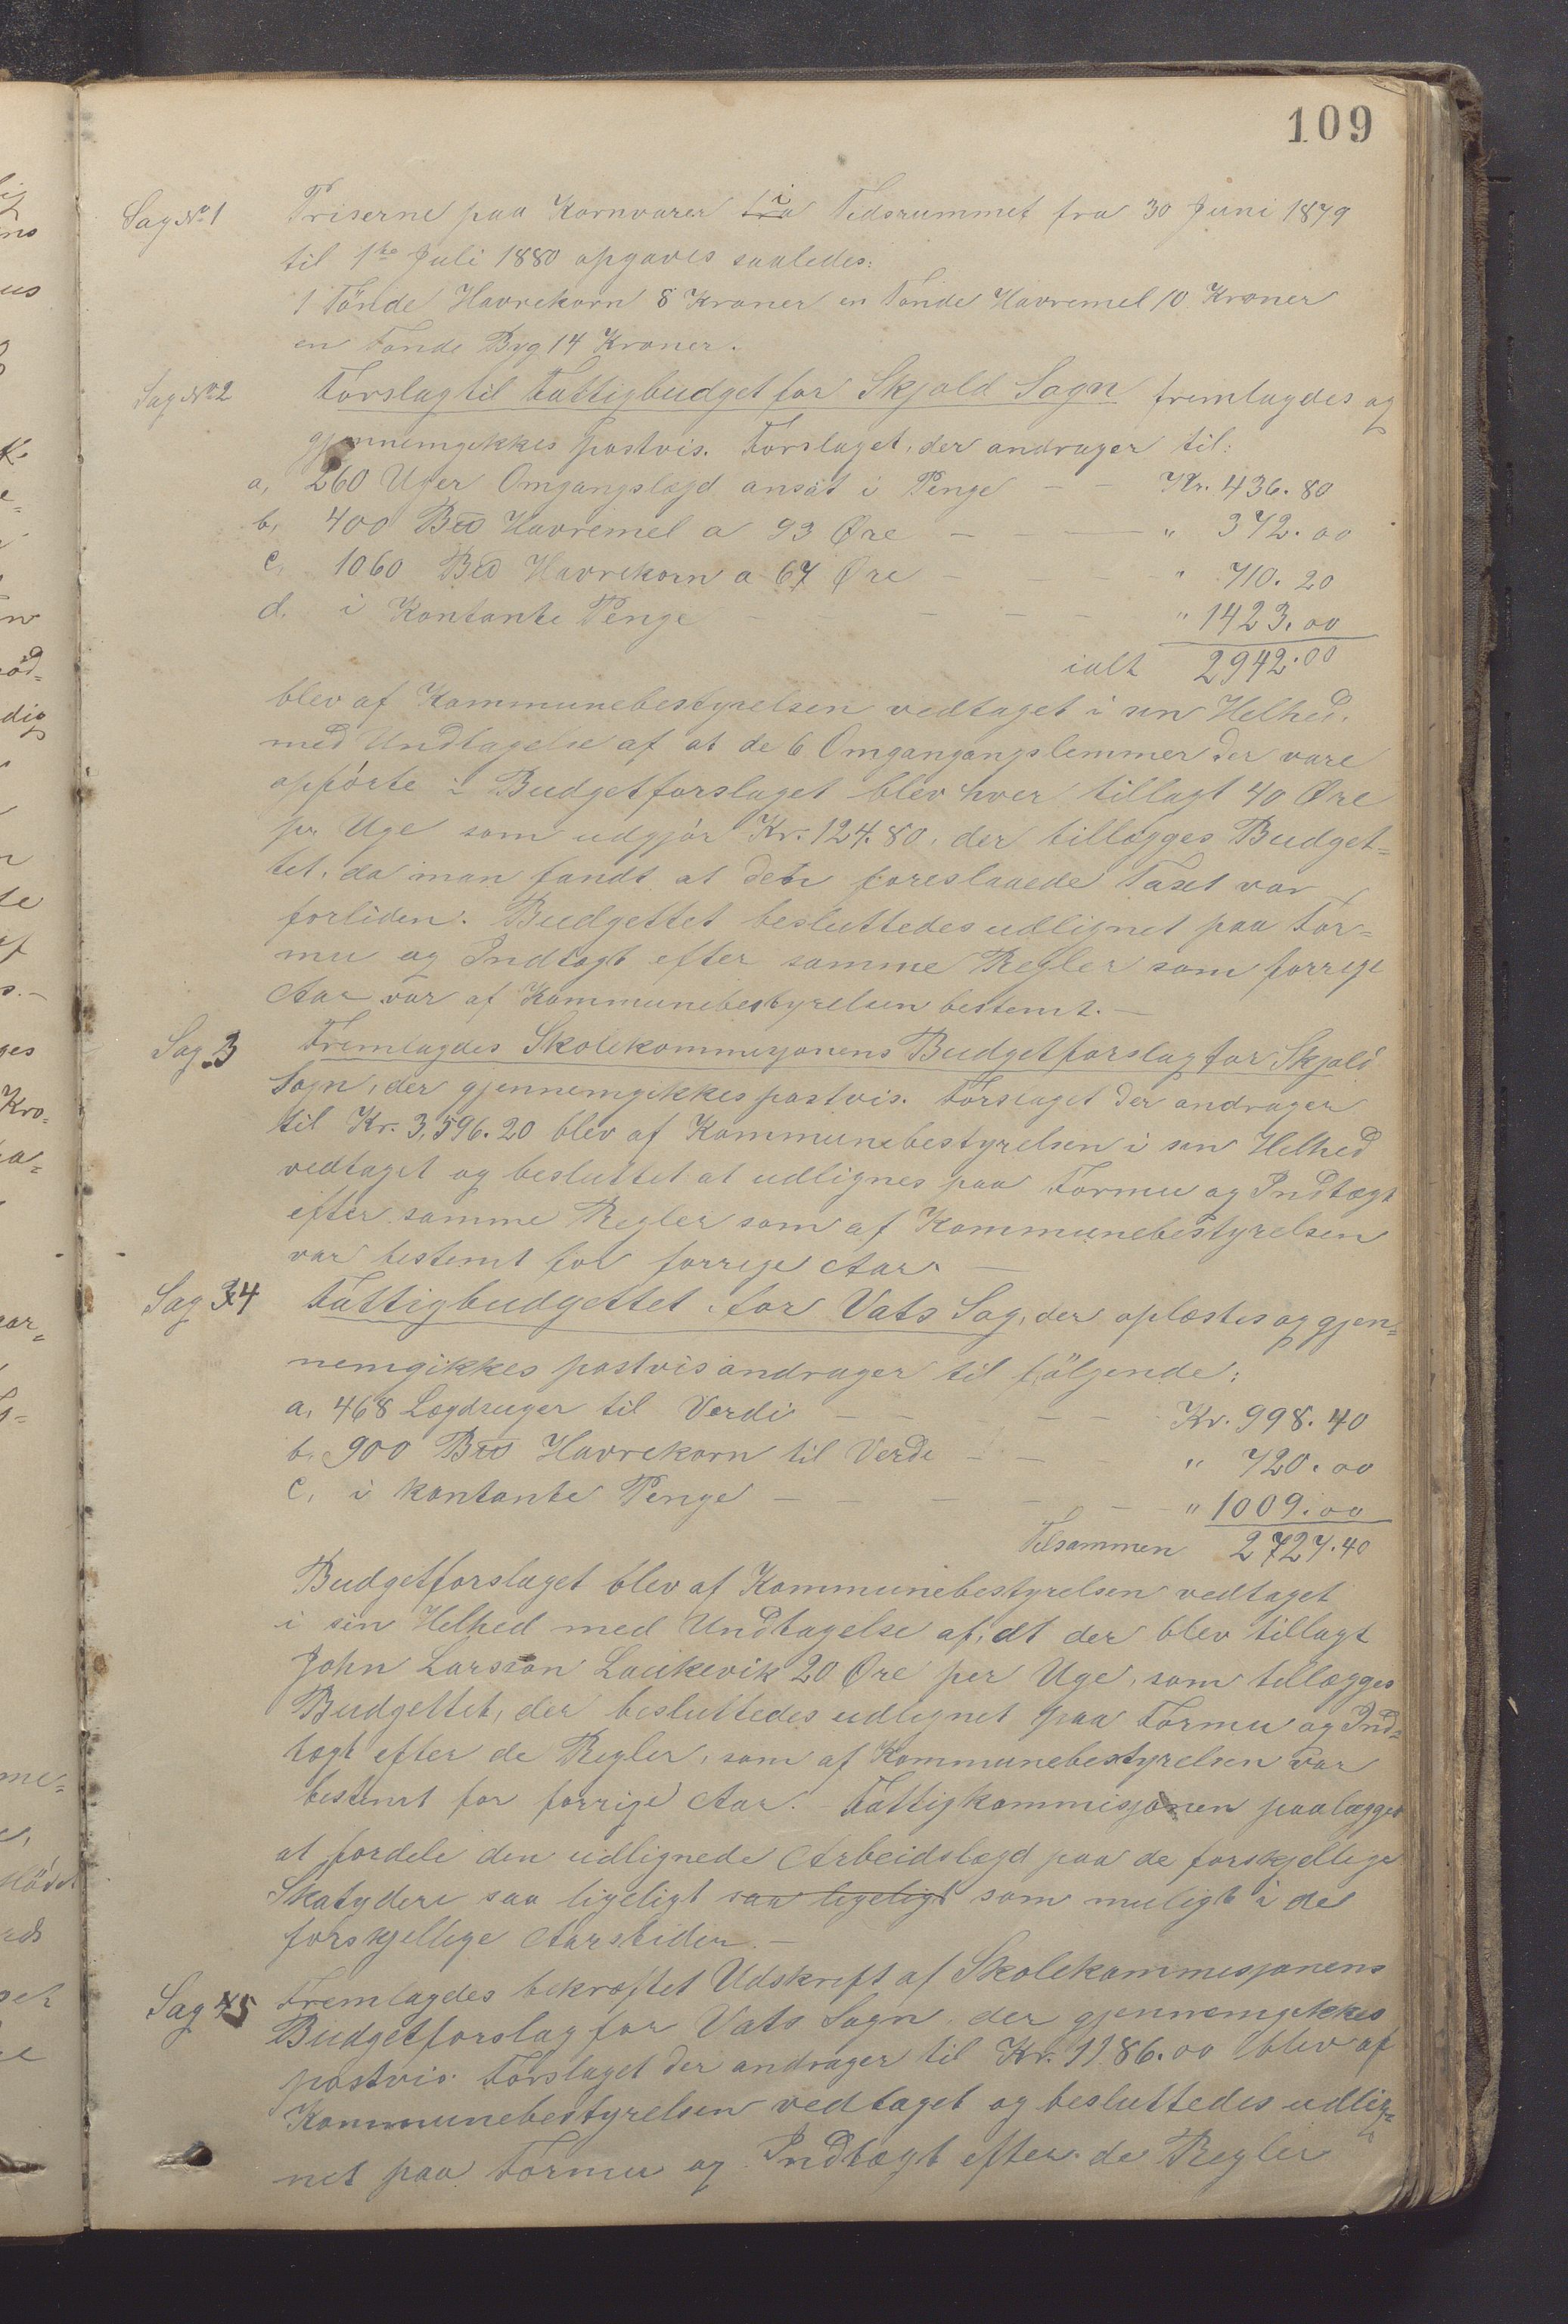 109
Sag No 1 Priserne paa Kornvarer i Tidsrummet fra 30 Juni 1879
til 1ste Juli 1880 opgaves saaledes:
1 Tönde Havrekorn 8 Kroner en Tönde Havremel 10 Kroner
en Tönde Byg 14 Kroner.
Sag No 2 Forslag til Fattigbudget for Skjold Sogn fremlagdes og
gjennemgikkes postvis. Forslaget, der andrager til:
a, 260 Uger Omgangslægd ansat i Penge — — Kr. 436.80
b, 400 B℔ Havremel a 93 Øre — — — " 372.00
c, 1060 B℔ Havrekorn a 67 Øre — — — " 710.20
d. i Kontante Penge — — — — — " 1423.00
ialt 2942.00
blev af Kommunebestyrelsen vedtaget i sin Helhed,
med Undtagelse af at de 6 Omgangangslemmer der vare
oppförte i Budgetforslaget blev hver tillagt 40 Øre
pr Uge som udgjör Kr. 124.80, der tillægges Budget=
tet, da man fandt at den foreslaaede Taxt var
forliden. Budgettet besluttedes udlignet paa For=
mu og Indtægt efter samme Regler som forrige
Aar var af Kommunebestyrelsen bestemt. —
Sag 3 Fremlagdes Skolekommisjonens Budgetforslag for Skjold
Sogn, der gjennemgikkes postvis. Forslaget der andrager
til Kr. 3,596.20 blev af Kommunebestyrelsen i sin Helhed
vedtaget og besluttet at udlignes paa Formu og Indtægt
efter samme Regler som af Kommunebestyrelsen
var bestemt for forrige Aar. —
Sag 4 Fattigbudgettet for Vats Sog, der oplæstes og gjen=
nemgikkes postvis andrager til fölgende:
a, 468 Lægdsuger til Verdi — — — — Kr. 998.40
b, 900 B℔ Havrekorn til Verdi — — — " 720.00
c, i kontante Penge — — — — — " 1009.00
Tilsammen 2727.40
Budgetforslaget blev af Kommunebestyrelsen vedtaget
i sin Helhed med Undtagelse af, at der blev tillagt
John Larsson Laukevik 20 Øre per Uge, som tillægges
Budgettet, der besluttedes udlignet paa Formu og Ind=
tægt efter de Regler, som af Kommunebestyrelsen var
bestemt for forrige Aar. — Fattigkommisjonen paalægges
at fordele den udlignede Arbeidslægd paa de forskjellige
Skatydere saa ligeligt saa ligeligt som muligt i de
forskjellige Aarstider. —
Sag 5 Fremlagdes bekræftet Udskrift af Skolekommisjonens
Budgetforslag for Vats Sogn, der gjennemgikkes
postvis. Forslaget der andrager til Kr. 1186.00 blev af
Kommunebestyrelsen vedtaget og besluttedes udlig=
net paa Formu og Indtægt efter de Regler